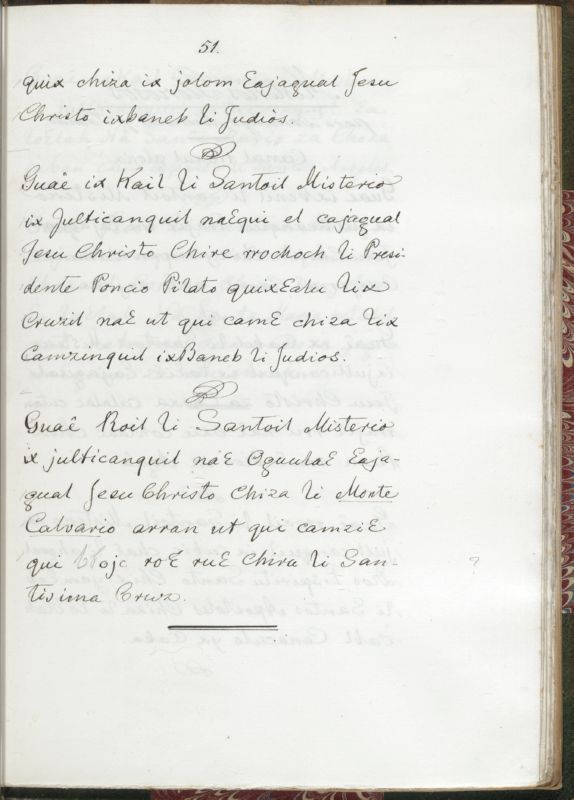 51.
quix chiza ix jolom Eajagual Jesu
Christo ixbaneb li Judiòs.
Guaê ix Kail li Santoil Misterio
ix Julticanquil naEqui el cajagual
Jesu Christo Chire rrochoch li Presi-
dente Poncio Pilato quixEalu lix
Cruzil naE ut qui camE chiza lix
Camzinquil ixBaneb li Judios.
Guaê Roil li Santoil Misterio
ix julticanquil naE OguulaE Eaja-
gual Jesu Christo Chiza li Monte
Calvario arran ut qui camziE
qui ojc roE ruE Chira li San-
tisima Cruz.
?